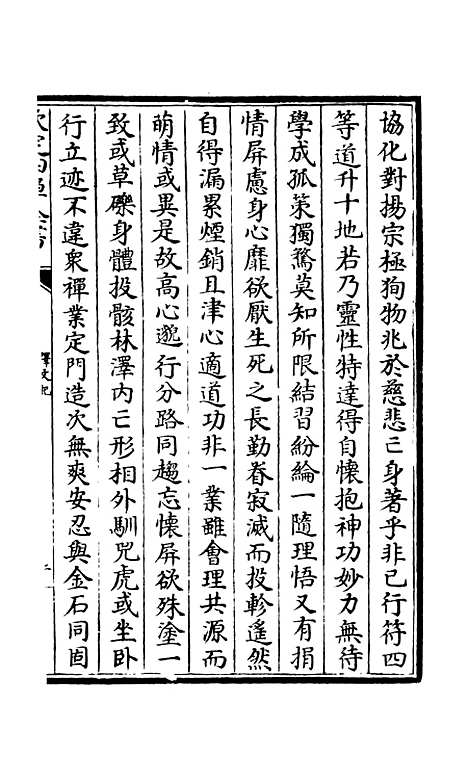 協化對揚宗極狥物兆於慈悲亡身著乎非已行符四
等道升十地若乃靈性特達得自懷抱神功妙力無待
學成孤策獨騖莫知所限結習紛綸一隨理悟又有捐
情屏慮身心靡欲厭生死之長勤眷寂滅而投軫遙然
自得漏累煙銷且津心適道功非一業雖會理共源而
萌情或異是故高心邈行分路同趨忘懷屏欲殊塗一
致或草礫身體投骸林澤内亡形相外馴兕虎或坐卧
行立迹不違衆禪業定門造次無爽安忍與金石同固
釋文紀